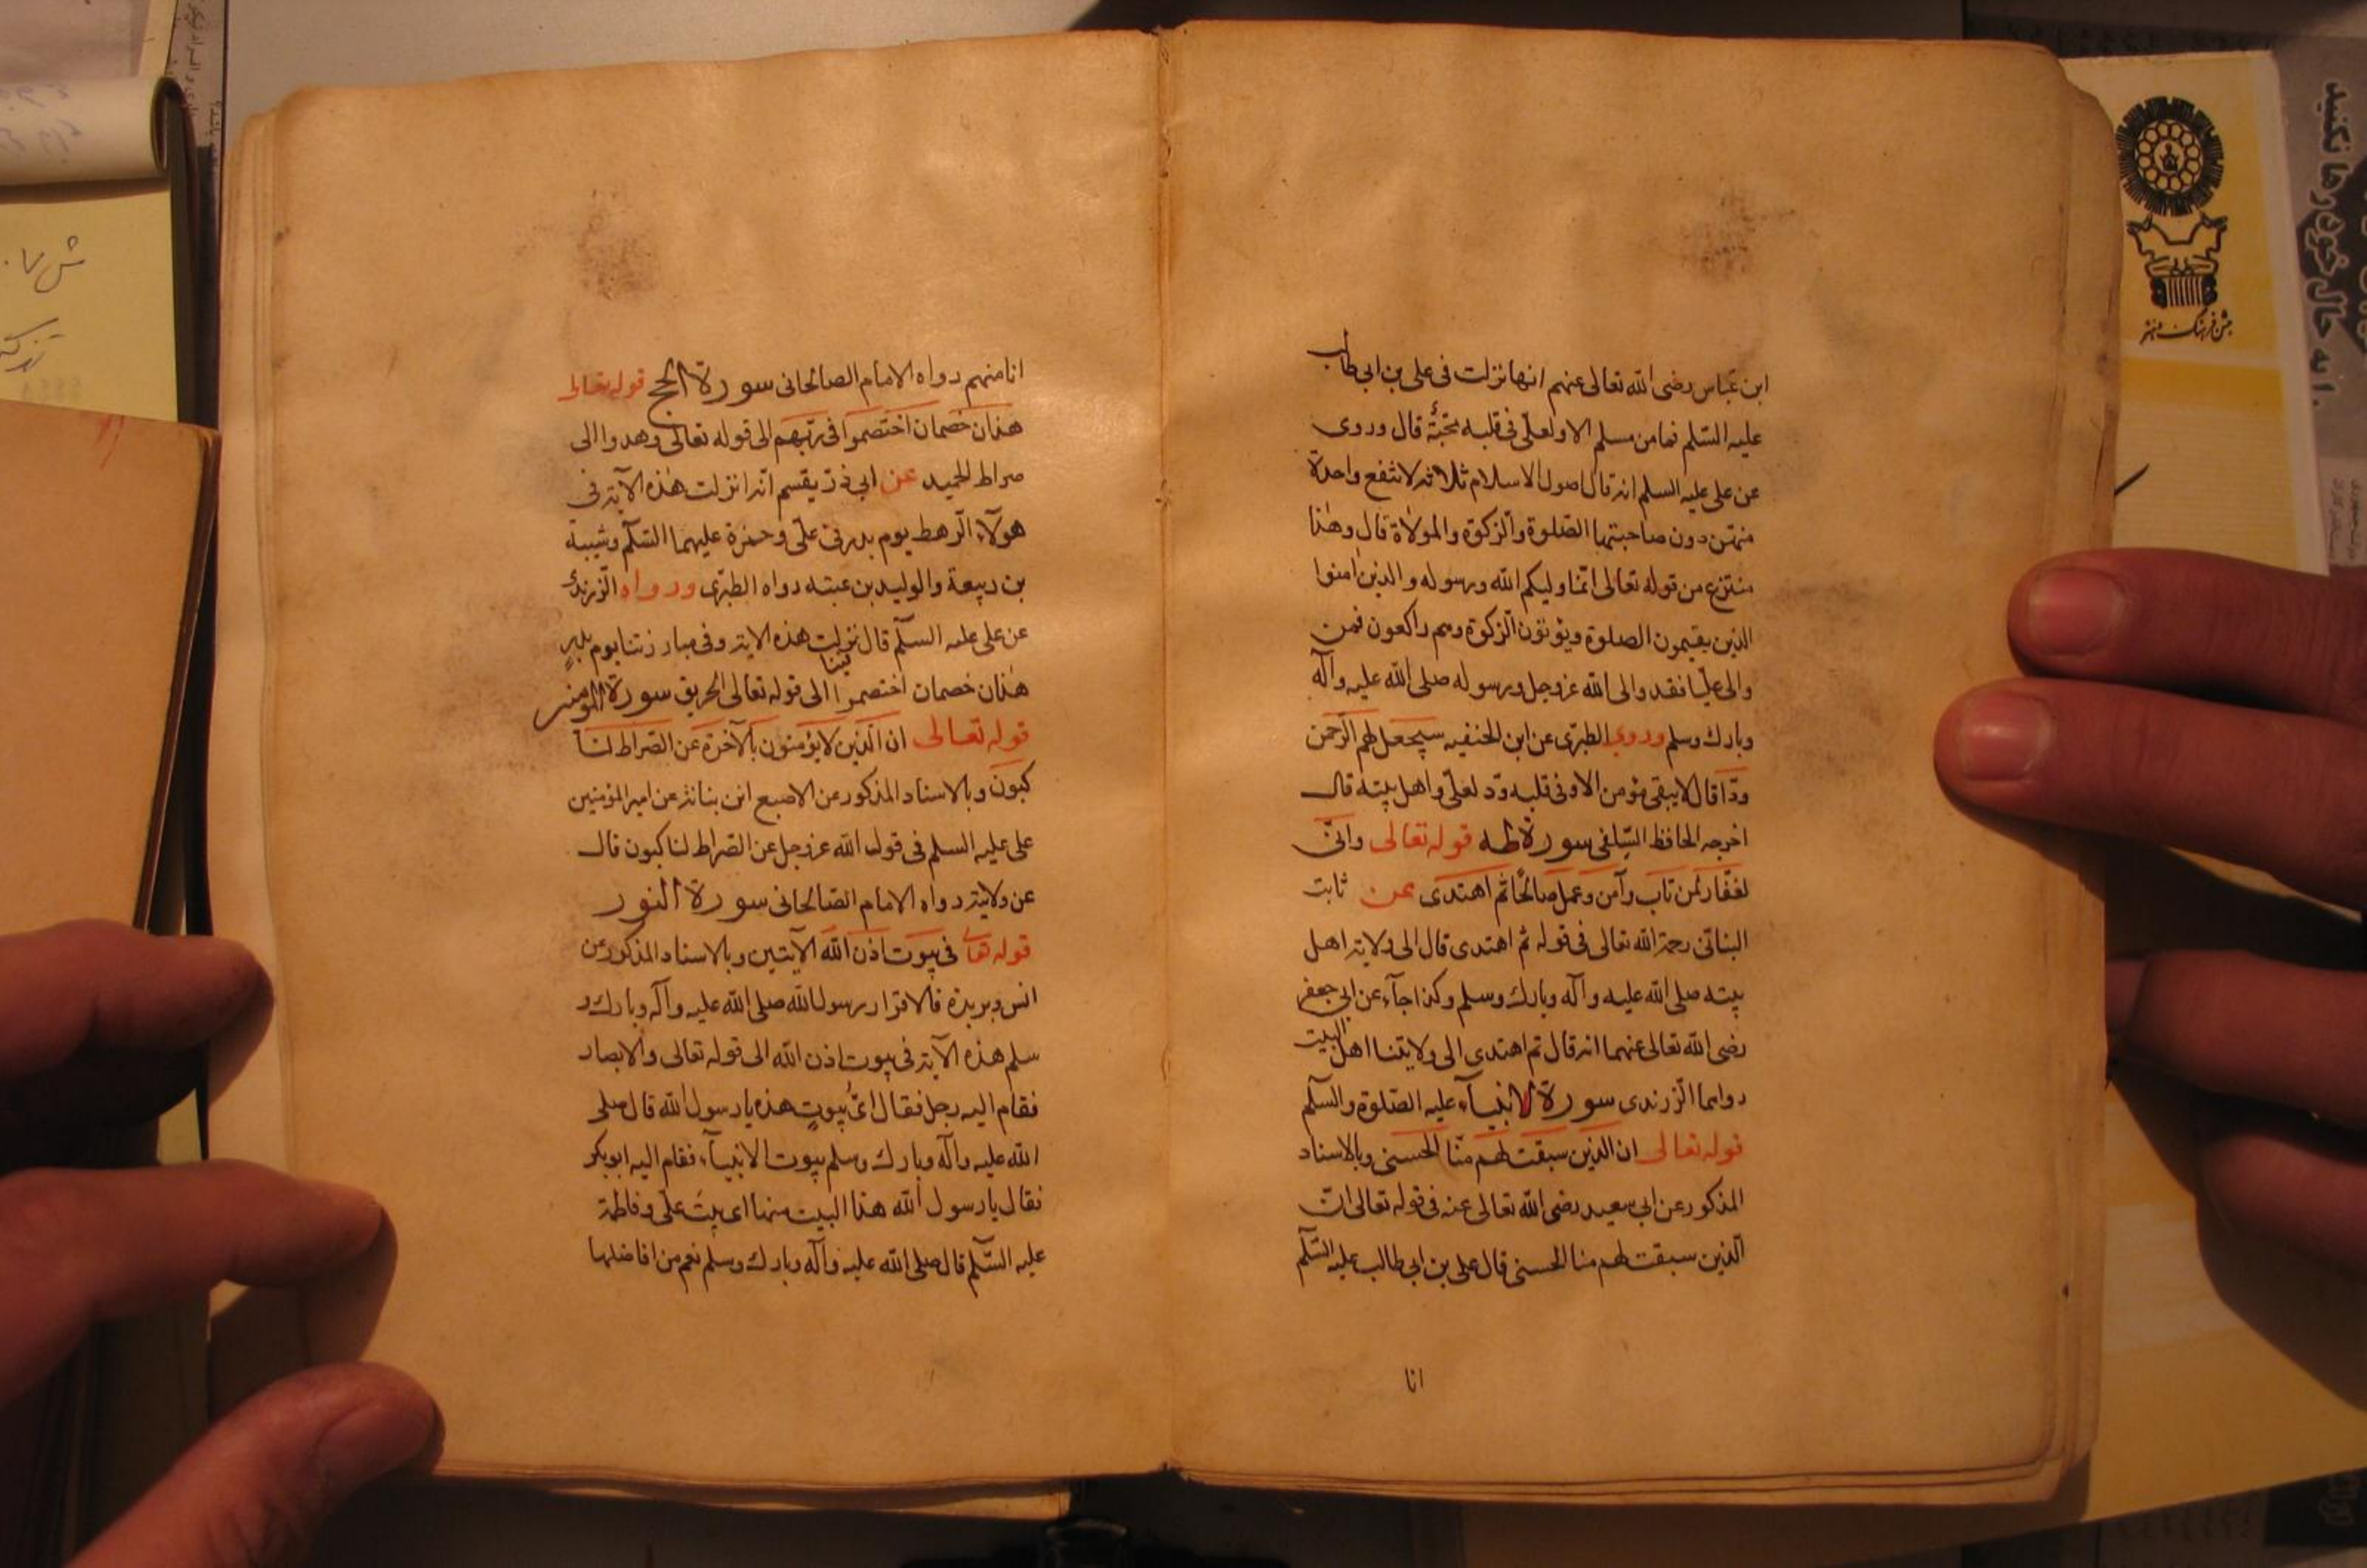 ابن عباس رضى الله تعالى عنهم انها نزلت فى على بن ابى طالب
عليه السّلم فما من مسلم الا ولعلّى فى قلبه محبّة قال وروى
عن على عليه السلم انه قال اصول الاسلام ثلاثه لا تنفع واحدة
منهن دون صاحبتها الصّلوة والزكوة والموالاة قال وهٰذا
منتزع من قوله تعالى انّما وليكم الله ورسوله والذين اٰمنوا
الذين يقيمون الصلوة ويؤتون الزكوة وهم راكعون فمن
والى عليّا فقد والى الله عز وجل ورسوله صلى الله عليه وآله
وبارك وسلم وروى الطبرّى عن ابن الحنفيه سيجعل لهم الرّحمن
ودّا قال لا يبقى مؤمن الا وفى قلبه ودّ لعلىّ واهل بيته قال
اخرجه الحافظ السّلفى سورة طه قوله تعالى وانّى
لغفّار لمن تاب وآمن وعمل صالحًا ثم اهتدى عن ثابت
البنانّى رحمة الله تعالى فى قوله ثم اهتدى قال الى ولاية اهل
بيته صلى الله عليه وآله وبارك وسلم وكذا جآء عن ابى جعفر
رضى الله تعالى عنهما انه قال ثم اهتدى الى ولايتنا اهل البيت
رواهما الزّرندى سورة الانبيآء عليه الصّلوة والسّلم
قوله تعالى ان الذين سبقت لهم منّا الحسنى وبالاسناد
المذكور عن ابى سعيد رضى الله تعالى عنه فى قوله تعالى انّ
الّذين سبقت لهم منا الحسنى قال على بن ابى طالب عليه السّلم
انا
انا منهم رواه الامام الصالحانى سورة الحج قوله تعالى
هذان خصمان اختصموا فى ربّهم الى قوله تعالى وهدوا الى
صراط الحميد عن ابى ذرّ يقسم انّه انزلت هٰذه الآية فى
هولآء الرّهط يوم بدر فى علىّ وحمزة عليهما السّلم وشيبة
بن ربيعة والوليد بن عتبه رواه الطبرّى ورواه الزّرندى
عن على عليه السّلم قال نزلت هذه الاية وفى مبارزتنا يوم بدرٍ
هذان خصمان اختصموا الى قوله تعالى الحريق سورة المومنين
قوله تعالى ان الذين لا يؤمنون بالآخرة عن الصّراط لنا
كبون وبالاسناد المذكور عن الاصبع ابن بناتة عن امير المؤمنين
على عليه السلم فى قول الله عز وجل عن الصّراط لناكبون قال
عن ولايتى رواه الامام الصّالحانى سورة النور
قوله تعالى فى بيوت اذن الله الآيتين وبالاسناد المذكور عن
انس وبريدة قالا قرا رسول الله صلى الله عليه وآله وبارك و
سلم هذه الآية فى بيوت اذن الله الى قوله تعالى والابصار
فقام اليه رجل فقال اىّ بيوتٍ هذه يا رسول الله قال صلى
الله عليه وآله وبارك وسلم بيوت الانبيآء فقام اليه ابو بكر
فقال يا رسول الله هذا البيت منها اى بيت علىّ وفاطمة
عليه السّلم قال صلى الله عليه وآله وبارك وسلم نعم من افاضلها
جشن فرهنگ و هنر